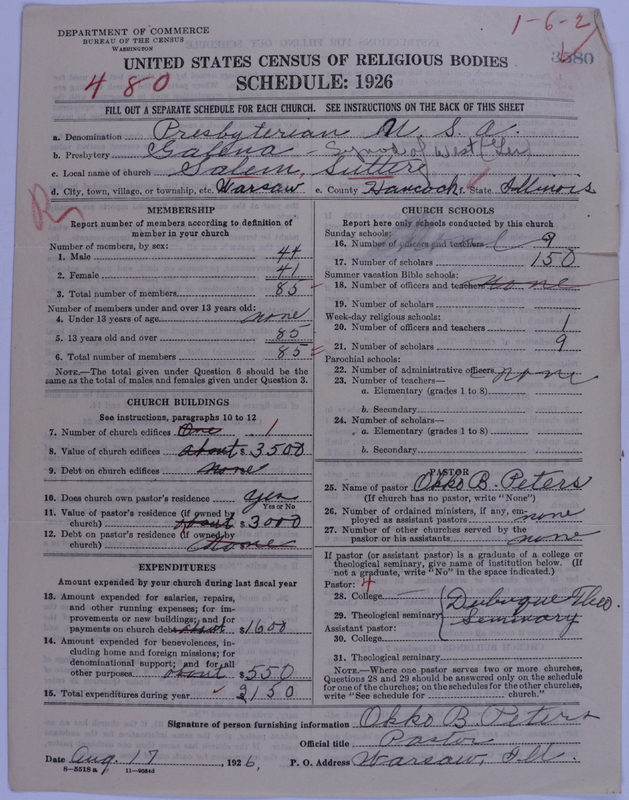 DEPARTMENT OF COMMERCE
BUREAU OF THE CENSUS
WASHINGTON
1-6-2
3580
UNITED STATES CENSUS OF RELIGIOUS BODIES
480
SCHEDULE: 1926
FILL OUT A SEPARATE SCHEDULE FOR EACH CHURCH. SEE INSTRUCTIONS ON THE BACK OF THIS SHEET
a. Denomination Presbyterian U. S. A.
b. Presbytery Galena - Synod of West (Ger)
c. Local name of church Salem, Sutter
d. City, town, village, or township, etc. Warsaw e. County Hancock f. State Illinois
MEMBERSHIP
Report number of members according to definition of
member in your church
Number of members, by sex:
1. Male 44
2. Female 41
3. Total number of members 85
Number of members under and over 13 years old:
4. Under 13 years of age none
5. 13 years old and over 85
6. Total number of members 85
NOTE.—The total given under Question 6 should be
the same as the total of males and females given under Question 3.
CHURCH BUILDINGS
See instructions, paragraphs 10 to 12
7. Number of church edifices One 1
8. Value of church edifices about $ 3500
9. Debt on church edifices None
10. Does church own pastor's residence yes
Yes or No
11. Value of pastor's residence (if owned by
church) about $ 3000
12. Debt on pastor's residence (if owned by
church) None
EXPENDITURES
Amount expended by your church during last fiscal year
13. Amount expended for salaries, repairs,
and other running expenses; for im-
provements or new buildings; and for
payments on church debt about $ 1600
14. Amount expended for benevolences, in-
cluding home and foreign missions; for
denominational support; and for all
other purposes about $ 550
15. Total expenditures during year 2150
CHURCH SCHOOLS
Report here only schools conducted by this church
Sunday schools:
16. Number of officers and teachers 9
17. Number of scholars 150
Summer vacation Bible schools:
18. Number of officers and teachers none
19. Number of scholars
Week-day religious schools:
20. Number of officers and teachers 1
21. Number of scholars 9
Parochial schools:
22. Number of administrative officers none
23. Number of teachers—
a. Elementary (grades 1 to 8)
b. Secondary
24. Number of scholars—
a. Elementary (grades 1 to 8)
b. Secondary
PASTOR
25. Name of pastor Okko B. Peters
(If church has no pastor, write "None")
26. Number of ordained ministers, if any, em-
ployed as assistant pastors none
27. Number of other churches served by the
pastor or his assistants none
If pastor (or assistant pastor) is a graduate of a college or
theological seminary, give name of institution below. (If
not a graduate, write "No" in the space indicated.)
Pastor: 4
28. College
29. Theological seminary Dubuque Theo. Seminary
Assistant pastor:
30. College
31. Theological seminary
NOTE.—Where one pastor serves two or more churches,
Questions 28 and 29 should be answered only on the schedule
for one of the churches; on the schedules for the other churches,
write "See schedule for church."
Signature of person furnishing information Okko B. Peters
Official title Pastor
Date Aug. 17, 1926. P. O. Address Warsaw, Ill.
8—5518 a